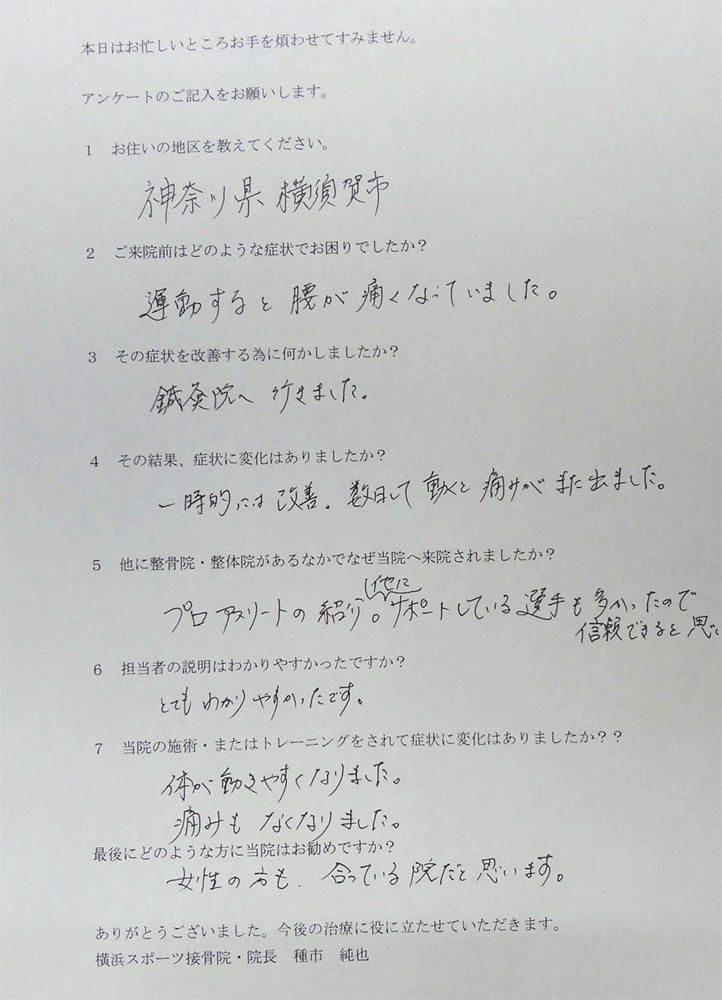 本日はお忙しいところお手を煩わせてすみません。
アンケートのご記入をお願いします。
1 お住いの地区を教えてください。
神奈川県横須賀市
2 ご来院前はどのような症状でお困りでしたか?
運動すると腰が痛くなっていました。
3 その症状を改善する為に何かしましたか?
鍼灸院へ行きました。
4 その結果、症状に変化はありましたか?
一時的には改善。数日して動くと痛みがまた出ました。
5 他に整骨院・整体院があるなかでなぜ当院へ来院されましたか?
他に
プロアスリートの紹介。サポートしている選手も多かったので
信頼できると思
6 担当者の説明はわかりやすかったですか?
とてもわかりやすかったです。
7 当院の施術・またはトレーニングをされて症状に変化はありましたか??
体が動きやすくなりました。
痛みもなくなりました。
最後にどのような方に当院はお勧めですか?
女性の方も、合っている院だと思います。
ありがとうございました。今後の治療に役に立たせていただきます。
横浜スポーツ接骨院・院長 種市 純也